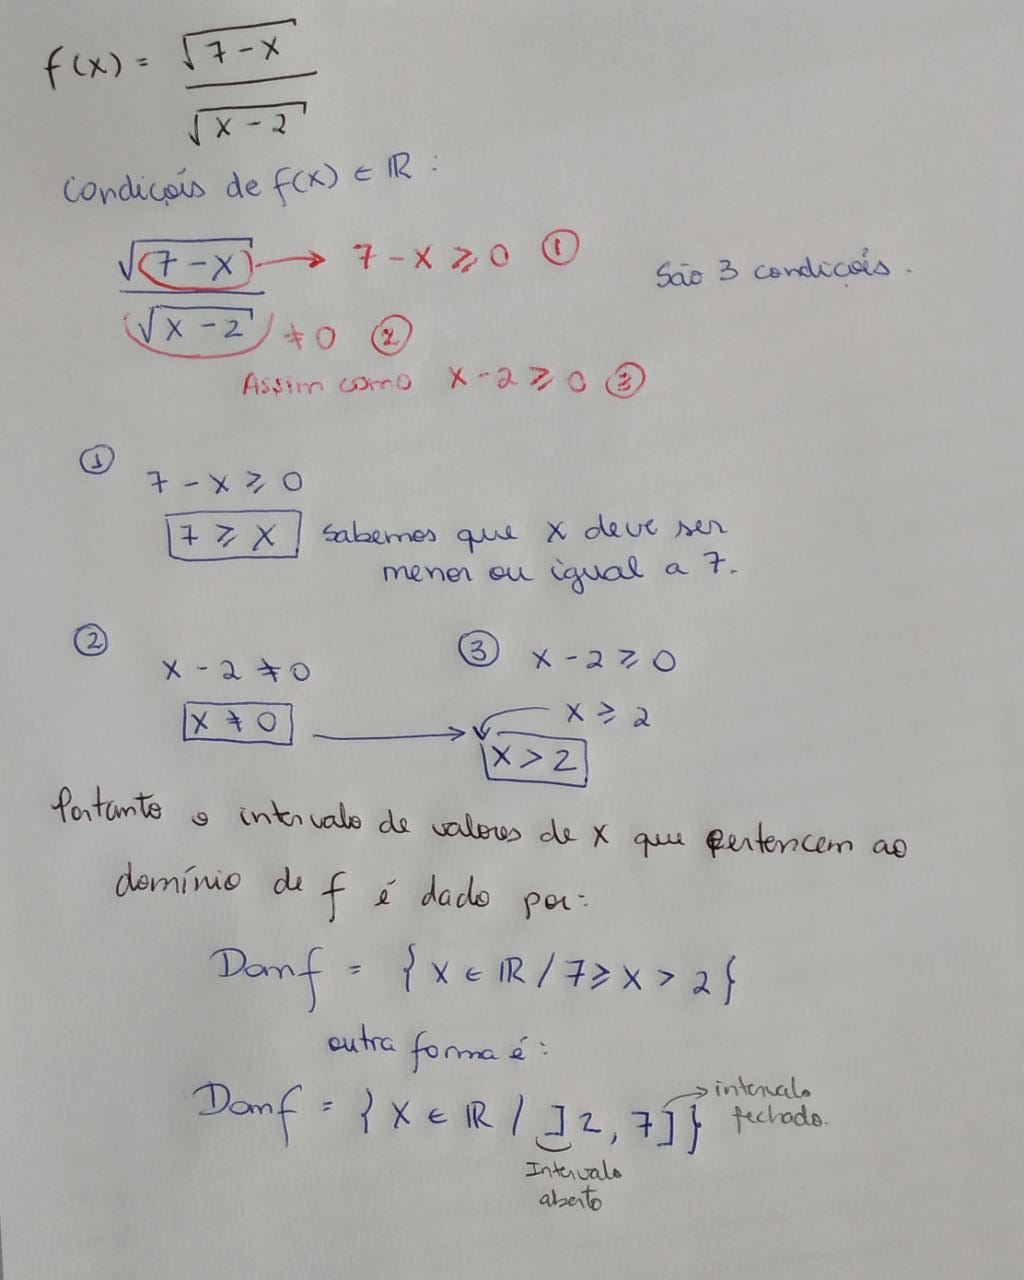 f(x) = √(7-x)
√(x-2)
condiçois de f(x) ∈ ℝ :
√(7-x) → 7-x ⩾ 0 ①
São 3 condiçois.
√(x-2) ≠ 0 ②
Assim como x-2 ⩾ 0 ③
①
7-x ⩾ 0
7 ⩾ x sabemos que x deve ser
menor ou igual a 7.
② ③ x-2 ⩾ 0
x-2 ≠ 0
x ≠ 0 → x ⩾ 2
x > 2
Portanto o intervalo de valores de x que pertencem ao
domínio de f é dado por:
Domf = {x ∈ ℝ / 7 ⩾ x > 2}
outra forma é:
Domf = {x ∈ ℝ / ]2, 7]} → intervalo
fechado.
Intervalo
aberto